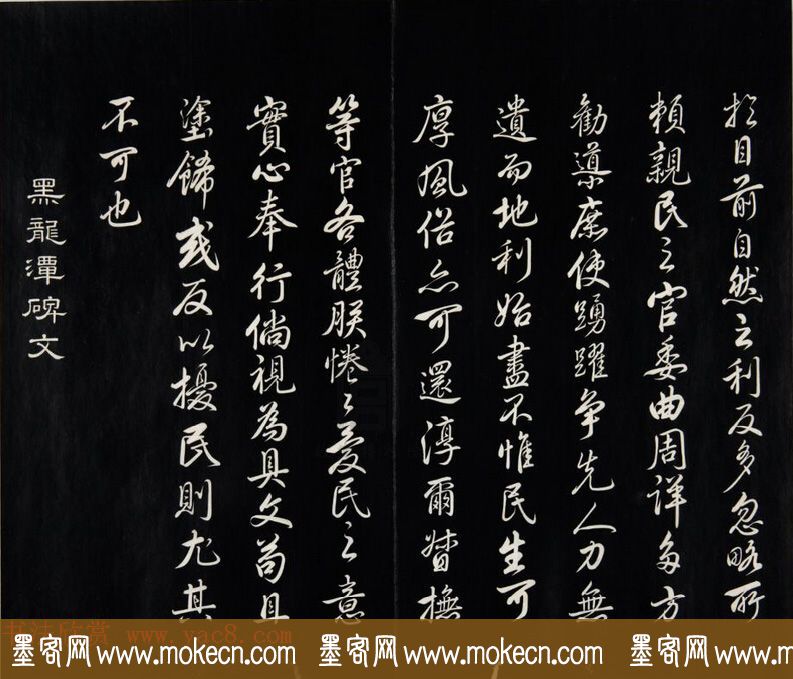 於目前自然之利反多忽略所
賴親民之官委曲周詳多方
勸導庶使踴躍爭先人力無
遺而地利始盡不惟民生可
厚風俗亦可還淳爾督撫
等官各體朕惓〻愛民之意
實心奉行倘視為具文苟且
塗飾或反以擾民則尤其
不可也
黑龍潭碑文
书法欣赏 www.yac8.com
墨客网 www.mokecn.com 墨客网 www.mokecn.com 墨客网 www.mokecn.com